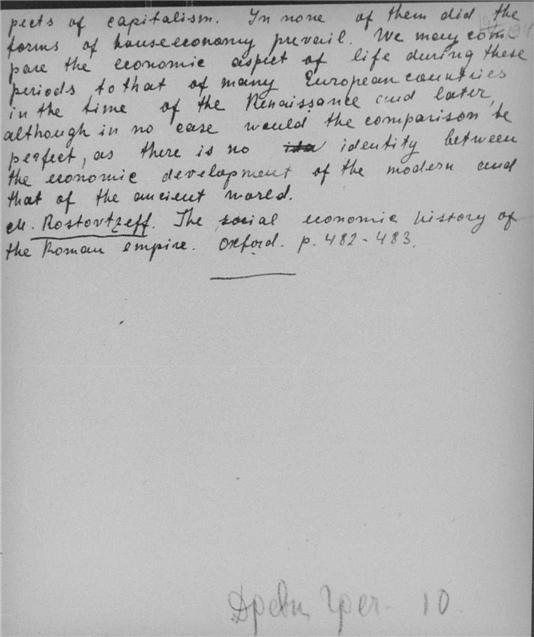 pects of capitalism. In none of them did the
forms of houseeconomy prevail. We may com
pare the economic aspect of life during these
periods to that of many European countries
in the time of the Renaissance and later,
although in no case would the comparison be
perfect, as there is no identity between
the economic development of the modern and
that of the ancient world.
M. Rostovtzeff. The social economic history of
the Roman empire. Oxford. p. 482-483.
Древн Грец- 10